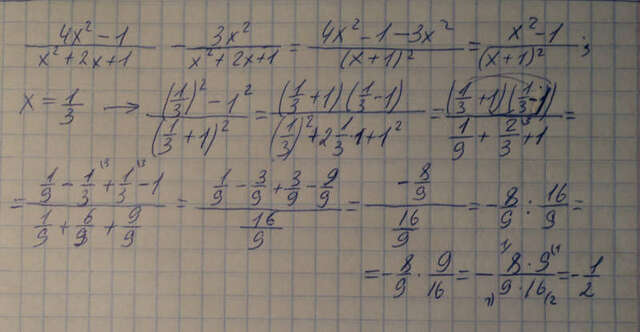 (4x² - 1)/(x² + 2x + 1) - 3x²/(x² + 2x + 1) = (4x² - 1 - 3x²)/(x + 1)² = (x² - 1)/(x + 1)² ;
x = 1/3 → ((1/3)² - 1²)/(1/3 + 1)² = ((1/3 + 1)(1/3 - 1))/((1/3)² + 2·1/3·1 + 1²) = ((1/3 + 1)(1/3 - 1))/(1/9 + 2/3\3 + 1) =
= (1/9 - 1/3\3 + 1/3\3 - 1)/(1/9 + 6/9 + 9/9) = (1/9 - 3/9 + 3/9 - 9/9)/(16/9) = (-8/9)/(16/9) = -8/9 : 16/9 =
= -8/9 · 9/16 = -(8 · 9)/(9 · 16) = -1/2